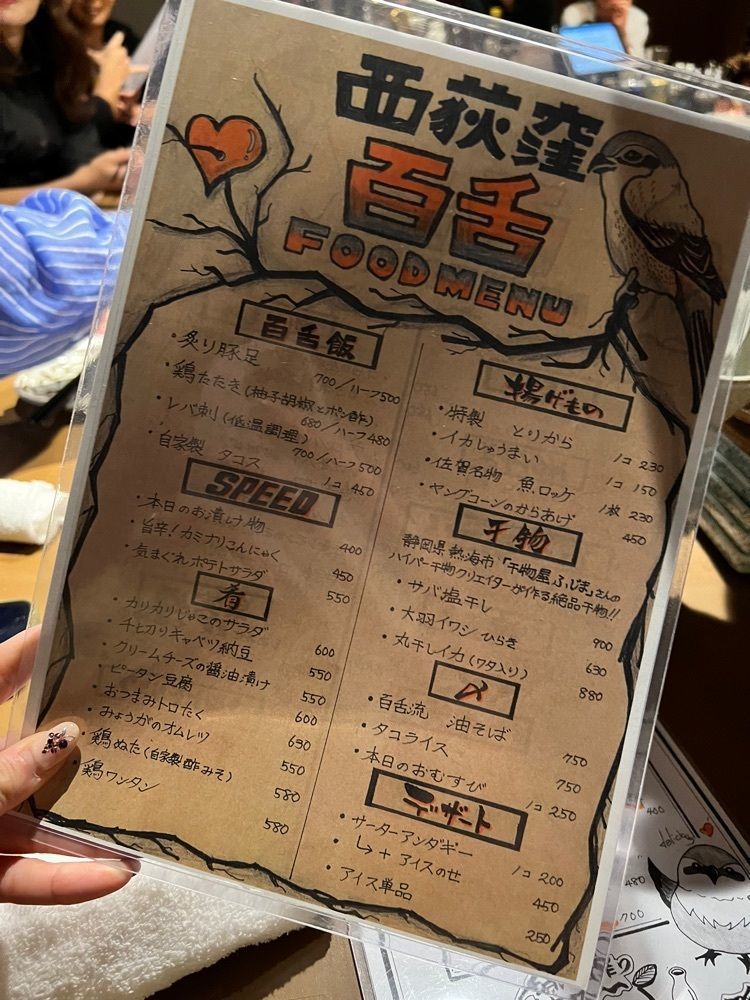 西荻窪
百舌
FOOD MENU
百舌飯
・炙り豚足
700/ハーフ500
・鶏たたき(柚子胡椒とポン酢)
680/ハーフ480
・レバ刺(低温調理)
700/ハーフ500
・自家製 タコス
1コ 450
SPEED
・本日のお漬け物
400
・旨辛!カミナリこんにゃく
450
・気まぐれポテトサラダ
550
肴
・カリカリじゃこのサラダ
600
・チヒカリキャベツ納豆
550
・クリームチーズの醤油漬け
550
・ピータン豆腐
600
・おつまみトロたく
630
・みょうがのオムレツ
550
・鶏ぬた(自家製酢みそ)
580
・鶏ワンタン
580
揚げもの
・特製 とりから
1コ 230
・イカしゅうまい
1コ 150
・佐賀名物 魚ロッケ
1枚 230
・ヤングコーンのからあげ
450
干物
静岡県熱海市「干物屋ふじま」さんの
ハイパー干物クリエイターが作る絶品干物!!
・サバ塩干し
900
・大羽イワシ ひらき
630
・丸干しイカ(ワタ入り)
880
〆
・百舌流 油そば
750
・タコライス
750
・本日のおむすび
1コ 250
デザート
・サーターアンダギー
1コ 200
・↳+アイスのせ
450
・アイス単品
250
400
480
700